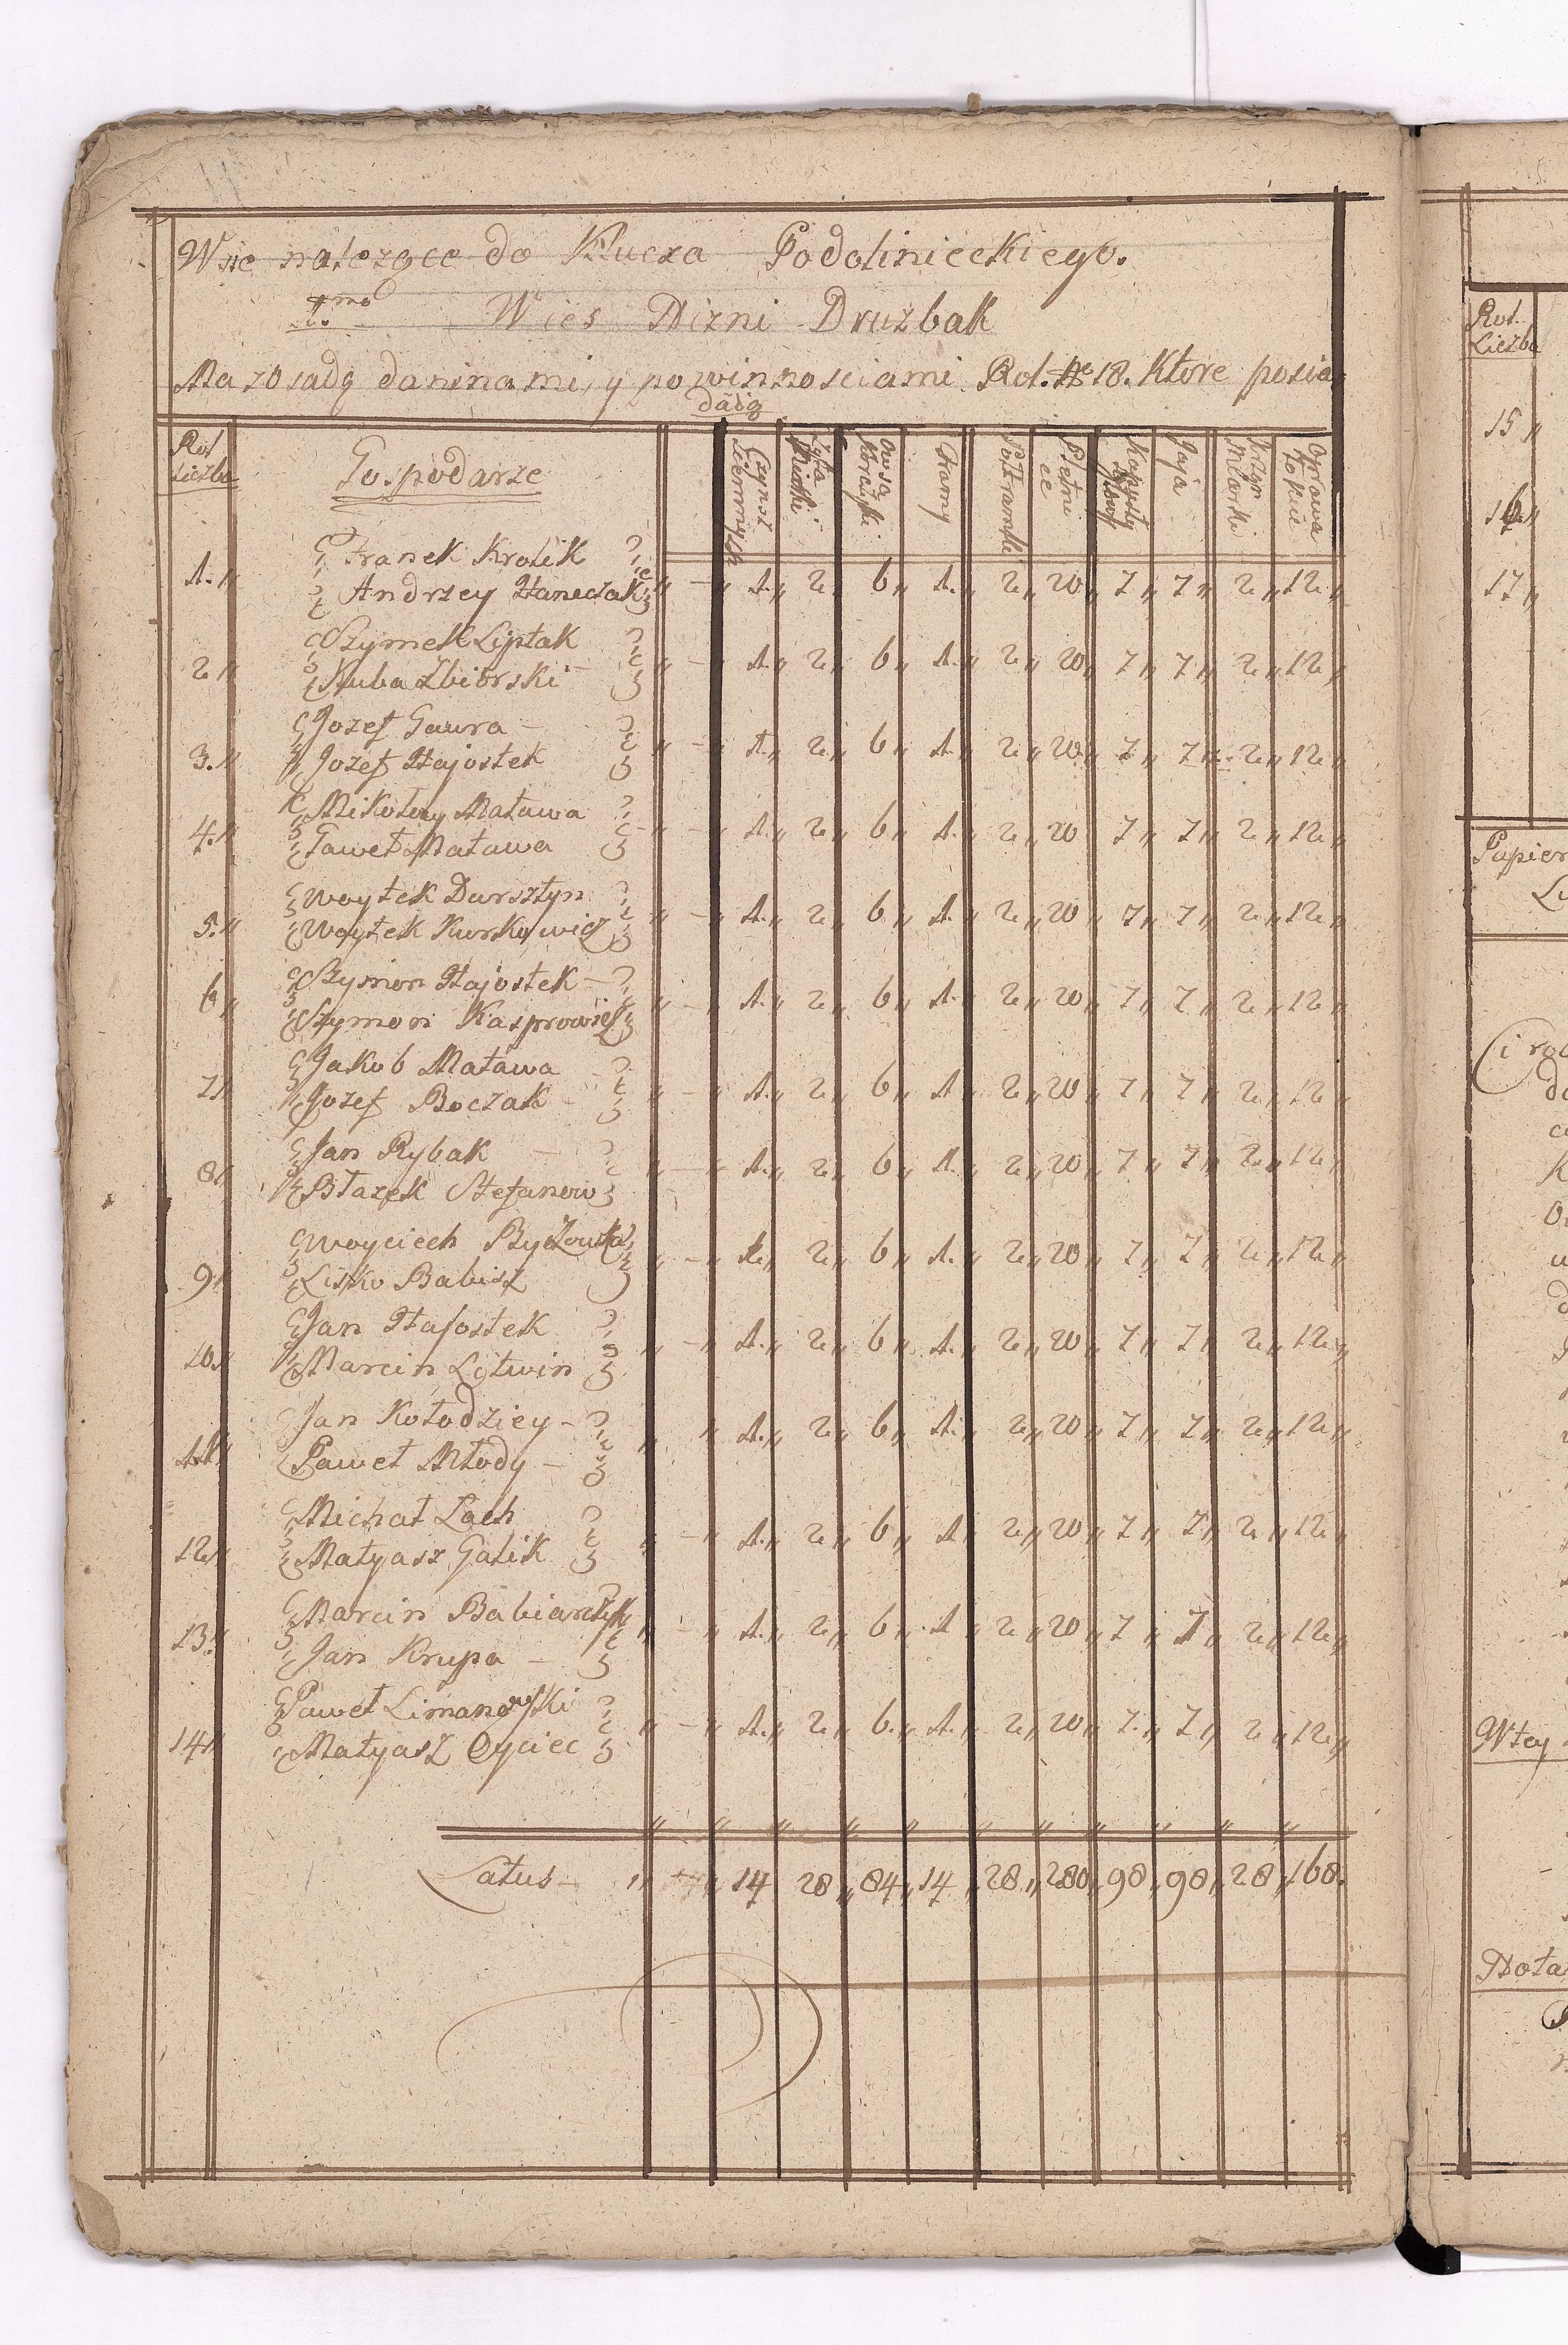 Wsie nalezące do Klucza Podolinieckiego.
1mo Wies Nizni Druzbak
Ma zosadą daninami, y powinnosciami Rol. No 18. Ktore posia-
daią
Rol Liczba
Gospodarze
Czynsz
Zyta
owsa Korczyki
Tramy
Półtramki
Pletni ce
Kapusty Głowy
Jaja
Oprawa łokci
Franek Krolik
1. „ Andrzey Haneczak „ - „ 1. „ 2 „ 6 „ 1. „ 2 „ 20 „ 7 „ 7 „ 2 „ 12 „
Szymek Liptak
2 „ Kuba Zbiorski „ - „ 1. „ 2 „ 6 „ 1. „ 2 „ 20 „ 7 „ 7 „ 2 „ 12 „
Jozef Gawra -
3. „ Jozef Hajostek „ - „ 1. „ 2 „ 6 „ 1. „ 2 „ 20 „ 7 „ 7 „ 2 „ 12 „
Mikołay Matawa
4. „ Paweł Matawa „ - „ 1. „ 2 „ 6 „ 1. „ 2 „ 20 7 „ 7 „ 2 „ 12 „
Woytek Dursztyn
5. „ Woytek Kurkowicz „ - „ 1. „ 2 „ 6 „ 1. „ 2 „ 20 „ 7 „ 7 „ 2 „ 12 „
Szymon Hajostek -
6 „ Szymon Kasprowicz „ - „ 1. „ 2 „ 6 „ 1. „ 2 „ 20 „ 7 „ 7 „ 2 „ 12 „
Jakob Matawa
7 „ Jozef Boczak - „ - „ 1. „ 2 „ 6 „ 1. „ 2 „ 20 „ 7 „ 7 „ 2 „ 12 „
Jan Rybak -
8 „ Błazek Stefanow „ - „ 1. „ 2 „ 6 „ 1. „ 2 „ 20 „ 7 „ 7 „ 2 „ 12 „
Woyciech
9 „ Lisko Babisz „ - „ 1. „ 2 „ 6 „ 1. „ 2 „ 20 „ 7 „ 7 „ 2 „ 12 „
Jan Hajostek
10. „ Marcin Litwin „ - „ 1. „ 2 „ 6 „ 1. „ 2 „ 20 „ 7 „ 7 „ 2 „ 12 „
Jan Kołodziey -
11 „ Paweł Młody - „ „ 1. „ 2 „ 6 „ 1. „ 2 „ 20 „ 7 „ 7 „ 2 „ 12 „
Michał Lach
12 „ Matyasz Galik „ - „ 1. „ 2 „ 6 „ 1. „ 2 „ 20 „ 7 „ 7 „ 2 „ 12 „
Marcin Babiarczyk
13. „ Jan Krupa - „ - „ 1. „ 2 „ 6 „ 1 „ 2 „ 20 „ 7 „ 7 „ 2 „ 12 „
Paweł Limanowski
14 „ Matyasz Oyciec „ - „ 1. „ 2 „ 6. „ 1. „ 2 „ 20 „ 7. „ 7 „ 2 „ 12 „
Latus - „ „ 14 28 „ 84 „ 14 „ 28 „ 280 „ 98 „ 98 „ 28 „ 168.
Rol. Liczba
15 „
16 „
17 „
Papier
Wtey
Nota